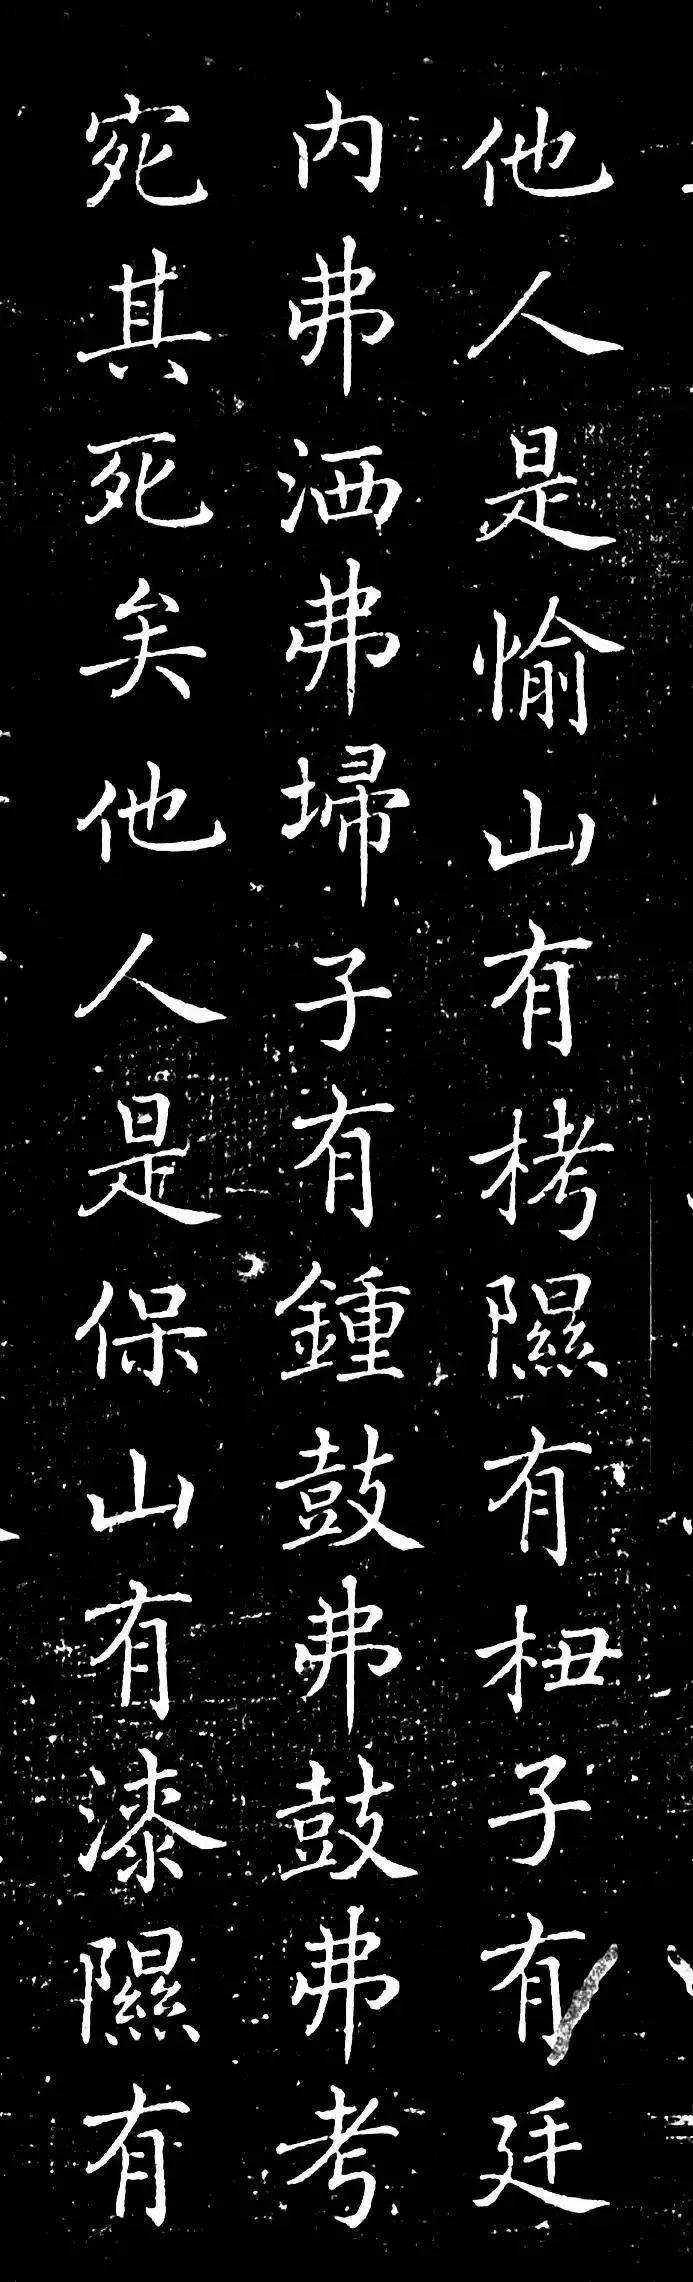 他人是愉山有栲隰有杻子有廷
内弗洒弗埽子有鍾鼓弗鼓弗考
宛其死矣他人是保山有漆隰有